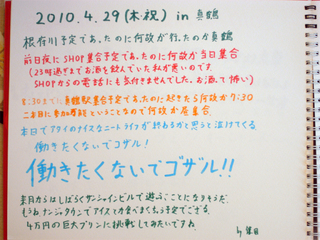 2010.4.29(木・祝) in 真鶴
根府川予定であったのに何故か行ったのが真鶴
前日夜にSHOP集合予定であったのに何故か当日集合
(23時過ぎまでお酒を飲んでいた私が悪いのです
SHOPからの電話にも気付きませんでした。お酒って怖い)
8:30までに真鶴駅集合予定であったのに起きたら何故か7:30
二本目に参加希望ということなので何故か昼集合
本日でアタイのナイスなニートライフが終わるかと思うと泣けてくる
働きたくないでゴザル!
働きたくないでゴザル!!
来月からはしばらくサンシャインビルで遊ぶことになりそうだ。
もうね ナンジャタウンでアイスでも食べまくっちゃう予定でござる。
4万円の巨大プリンに挑戦してみたいですね。
by